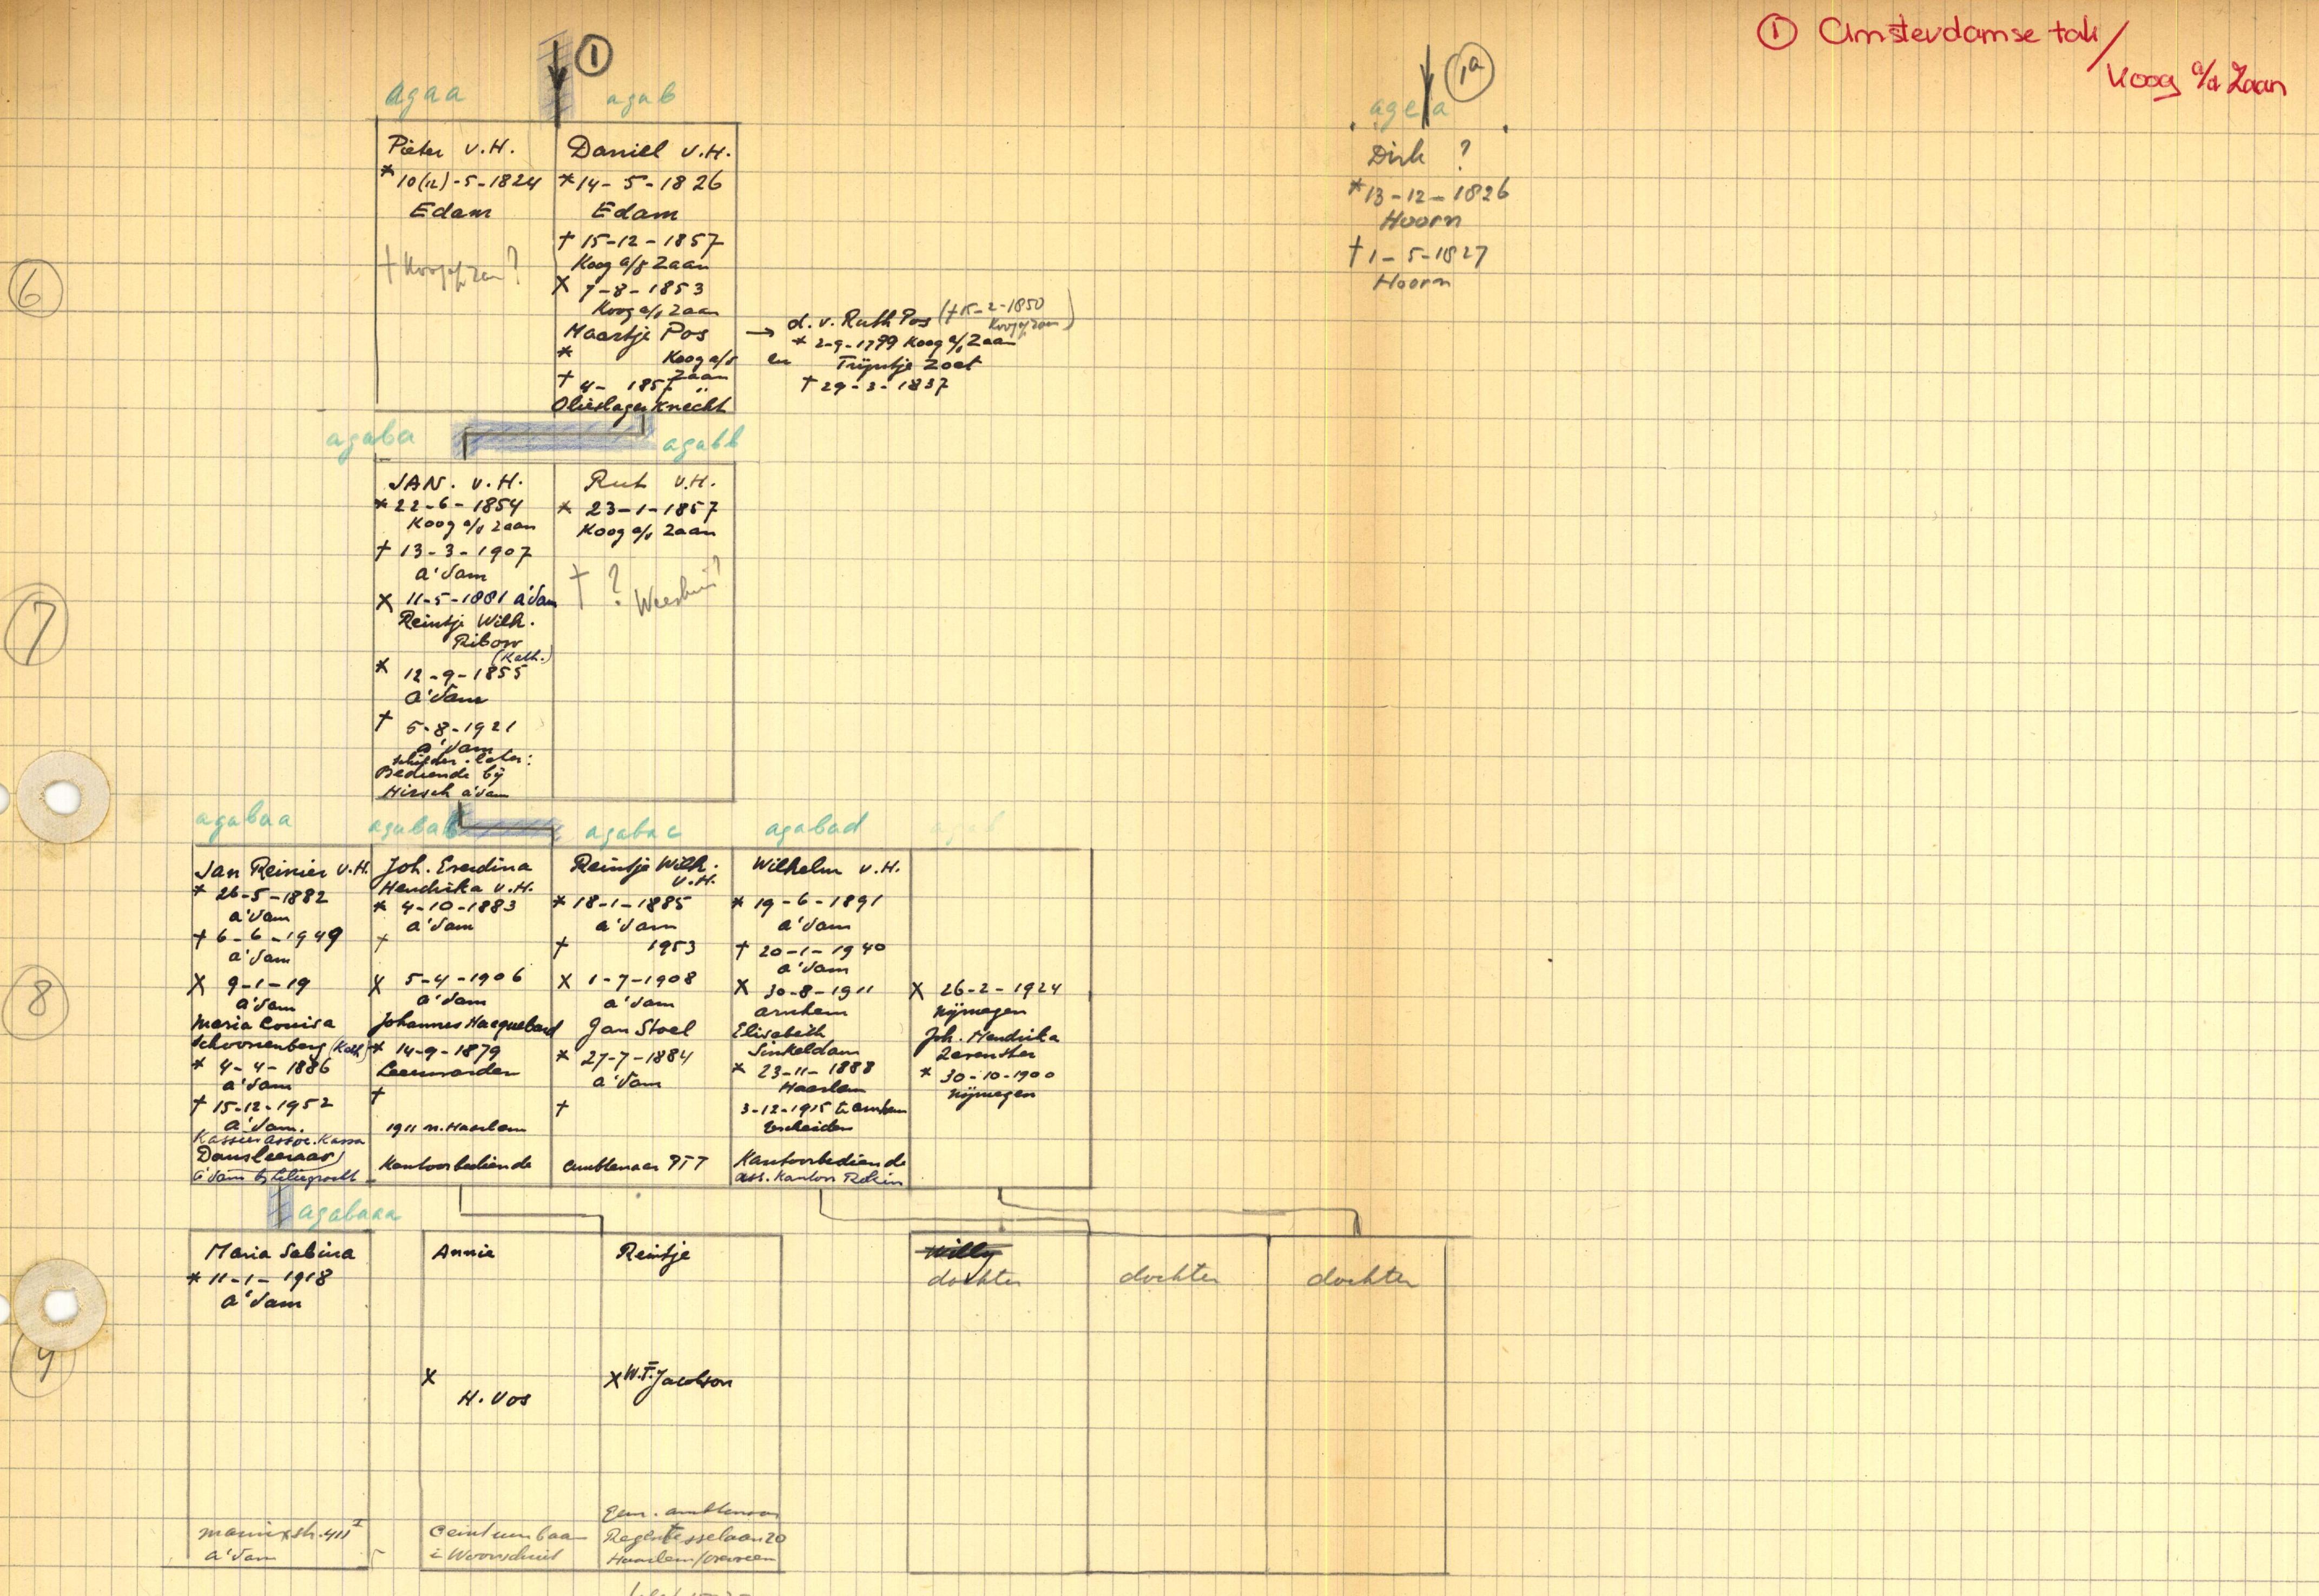 ① Amsterdamse tak/
Koog a/d Zaan
①
1a
agaa
agab
agea
6
Pieter v.H.
* 10(12)-5-1824
Edam
† Koog a/d Zaan?
Daniel v.H.
* 14-5-1826
Edam
† 15-12-1857
Koog a/d Zaan
X 7-8-1853
Koog a/d Zaan
Maartje Pos
* Koog a/d
Zaan
† 4- 1857 "
Olieslagersknecht
→ d. v. Ruth Pos († 15-2-1850
Koog a/d Zaan)
* 2-9-1799 Koog a/d Zaan
en Trijntje Zoet
† 29-3-1837
Dirk ?
* 13-12-1826
Hoorn
† 1-5-1827
Hoorn
agaba
agabb
7
JAN. v.H.
* 22-6-1854
Koog a/d Zaan
† 13-3-1907
A'dam
X 11-5-1881 A'dam
Reintje Wilh.
Ribow
(Kath.)
* 12-9-1855
A'dam
† 5-8-1921
A'dam
later:
Bediende bij
Hirsch A'dam
Rut v.H.
* 23-1-1857
Koog a/d Zaan
† ? Weeshuis?
agabaa
agabab
agabac
agabad
8
Jan Reinier v.H.
* 26-5-1882
A'dam
† 6-6-1949
A'dam
X 9-1-19
A'dam
Maria Louisa
Schoonenberg (Kath)
* 4-4-1886
A'dam
† 15-12-1952
A'dam.
Kassier assoc. Kassa
Dansleeraar
A'dam
Joh. Everdina
Hendrika v.H.
* 4-10-1883
A'dam
†
X 5-4-1906
A'dam
Johannes Hacquebord
* 14-9-1879
Leeuwarden
†
1911 n. Haarlem
Kantoorbediende
Reintje Wilh.
v.H.
* 18-1-1885
A'dam
† 1953
X 1-7-1908
A'dam
Jan Stoel
* 27-7-1884
A'dam
†
ambtenaar PTT
Wilhelm v.H.
* 19-6-1891
A'dam
† 20-1-1940
A'dam
X 30-8-1911
Arnhem
Elisabeth
Sinkeldam
* 23-11-1888
Haarlem
3-12-1915 te Arnhem
gescheiden
Kantoorbediende
ass. Kantoor Rokin
X 26-2-1924
Nijmegen
Joh. Hendrika
* 30-10-1900
Nijmegen
agabaaa
9
Maria Sabina
* 11-1-1918
A'dam
Marnixstr. 411 I
A'dam
Annie
X
H. Vos
Ceintuurbaan
i Woonschuit
Reintje
X W.F. Jacobson
Gem. ambtenaar
Regentesselaan 20
Haarlem/Overveen
Willy
dochter
dochter
dochter